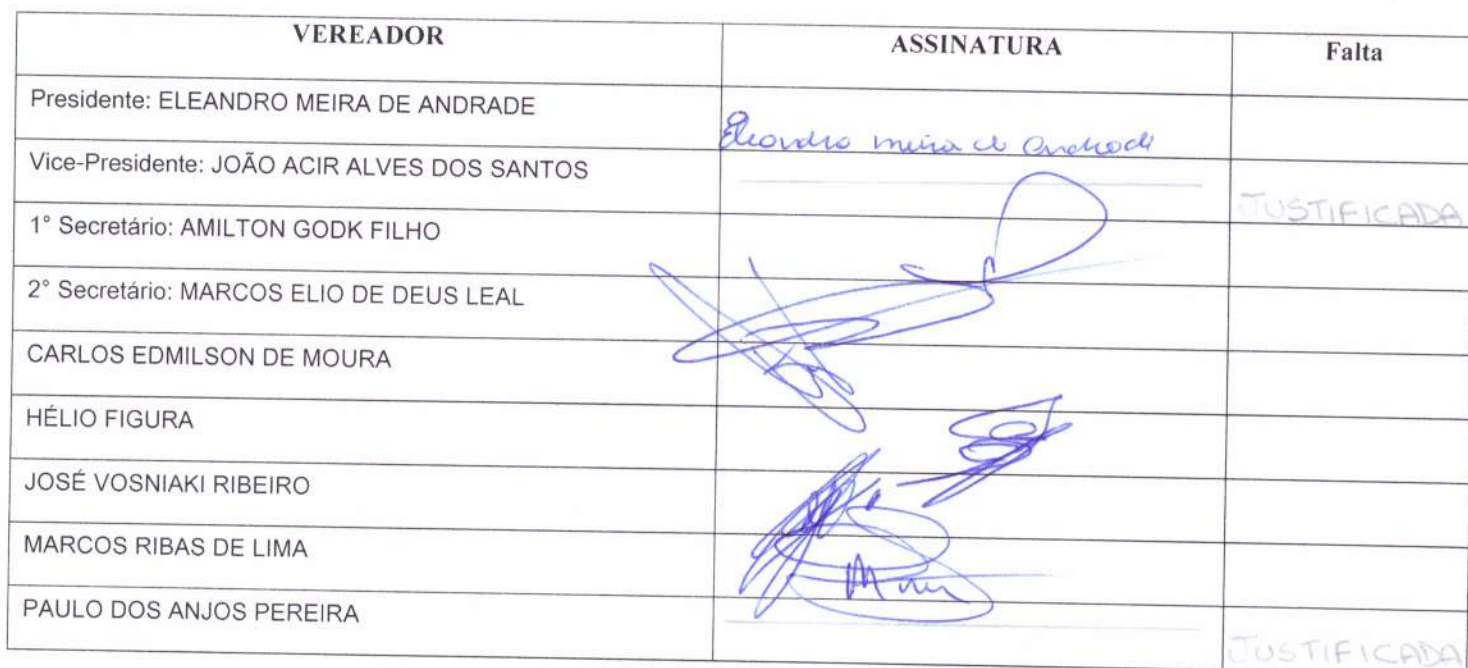 VEREADOR ASSINATURA Falta
Presidente: ELEANDRO MEIRA DE ANDRADE Eleandro Meira de Andrade
Vice-Presidente: JOÃO ACIR ALVES DOS SANTOS JUSTIFICADA
1° Secretário: AMILTON GODK FILHO
2° Secretário: MARCOS ELIO DE DEUS LEAL
CARLOS EDMILSON DE MOURA
HÉLIO FIGURA
JOSÉ VOSNIAKI RIBEIRO
MARCOS RIBAS DE LIMA
PAULO DOS ANJOS PEREIRA JUSTIFICADA